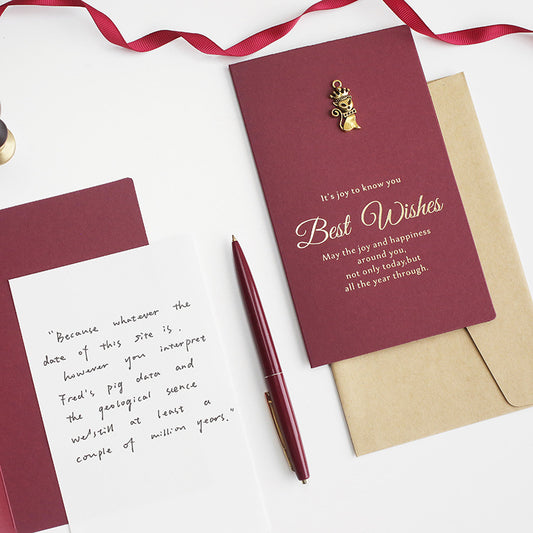 It's joy to know you
Best Wishes
May the joy and happiness
around you,
not only today,but
all the year through.
"Because whatever the
date of this site is.
however you interpret
Fred's pig data and
the geological sience
we'still at least a
couple of million years."